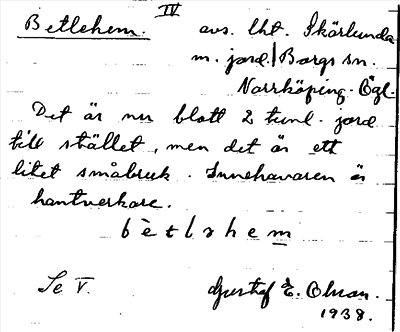 IV
Betlehem. avs. lht. Skärlunda
m. jord. Borgs sn.
Norrköping. Ögl.
Det är nu blott 2 tunl. jord
till stället, men det är ett
litet småbruk. Innehavaren är
hantverkare.
bètlehem
Se V. Gustaf E. Olsson.
1938.